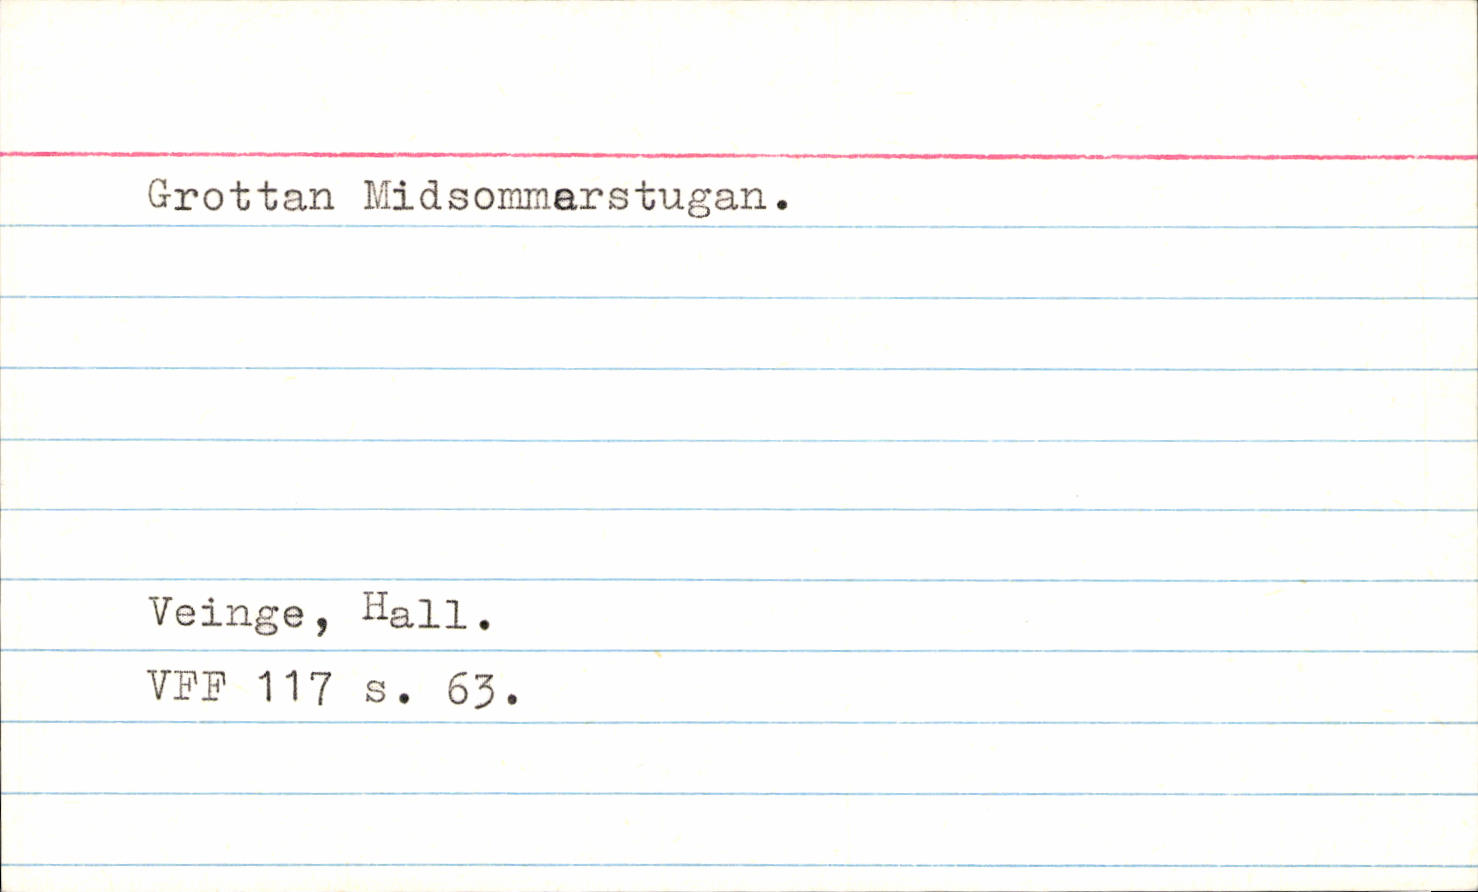 Grottan Midsommarstugan.
Veinge, Hall.
VFF 117 s. 63.